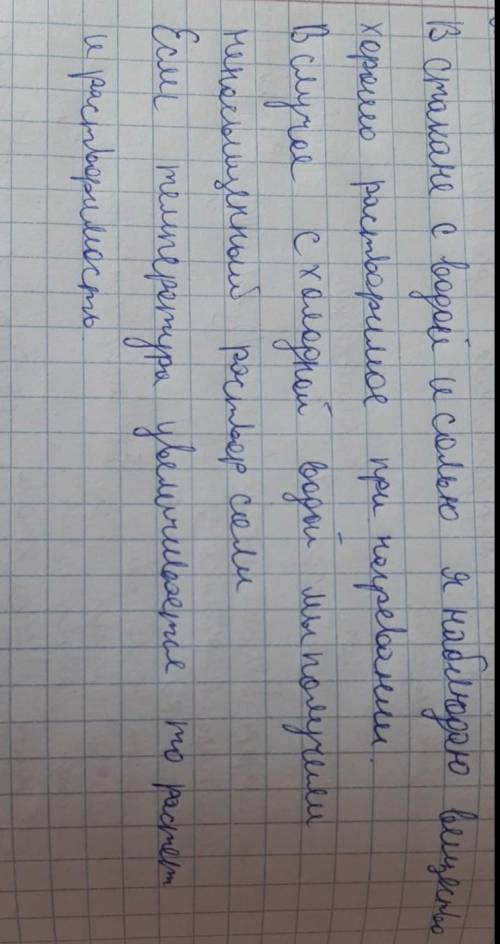 В стакане с водой и солью я наблюдаю вещество
хорошо растворимое при нагревании.
В случае с холодной водой мы получили
ненасыщенный раствор соли
Если температура увеличивается то растет
и растворимость